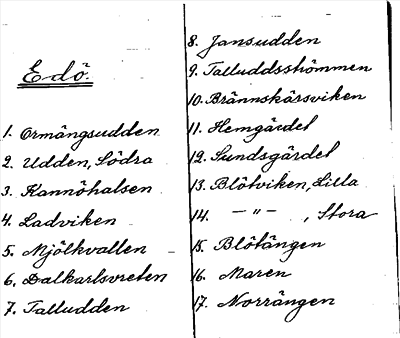 Edö.
1. Ormängsudden
2. Udden, Södra
3. Kannöhalsen
4. Ladviken
5. Mjölkvallen
6. Dalkarlsvreten
7. Talludden
8. Jansudden
9. Talluddsströmmen
10. Brännskärsviken
11. Hemgärdet
12. Sundsgärdet
13. Blötviken, Lilla
14. — " — , Stora
15. Blötängen
16. Maren
17. Norrängen